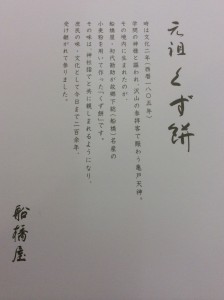 元祖くず餅
時は文化二年(西暦一八〇五年)
学問の神様と謳われ、沢山の参拝客で賑わう亀戸天神。
その境内に生まれたのが
船橋屋・初代勘助が故郷下総(船橋)名産の
小麦粉を用いて作った「くず餅」です。
その味は、神社詣でと共に親しまれるようになり、
庶民の味・文化として今日まで二百余年、
受け継がれて参りました。
船橋屋